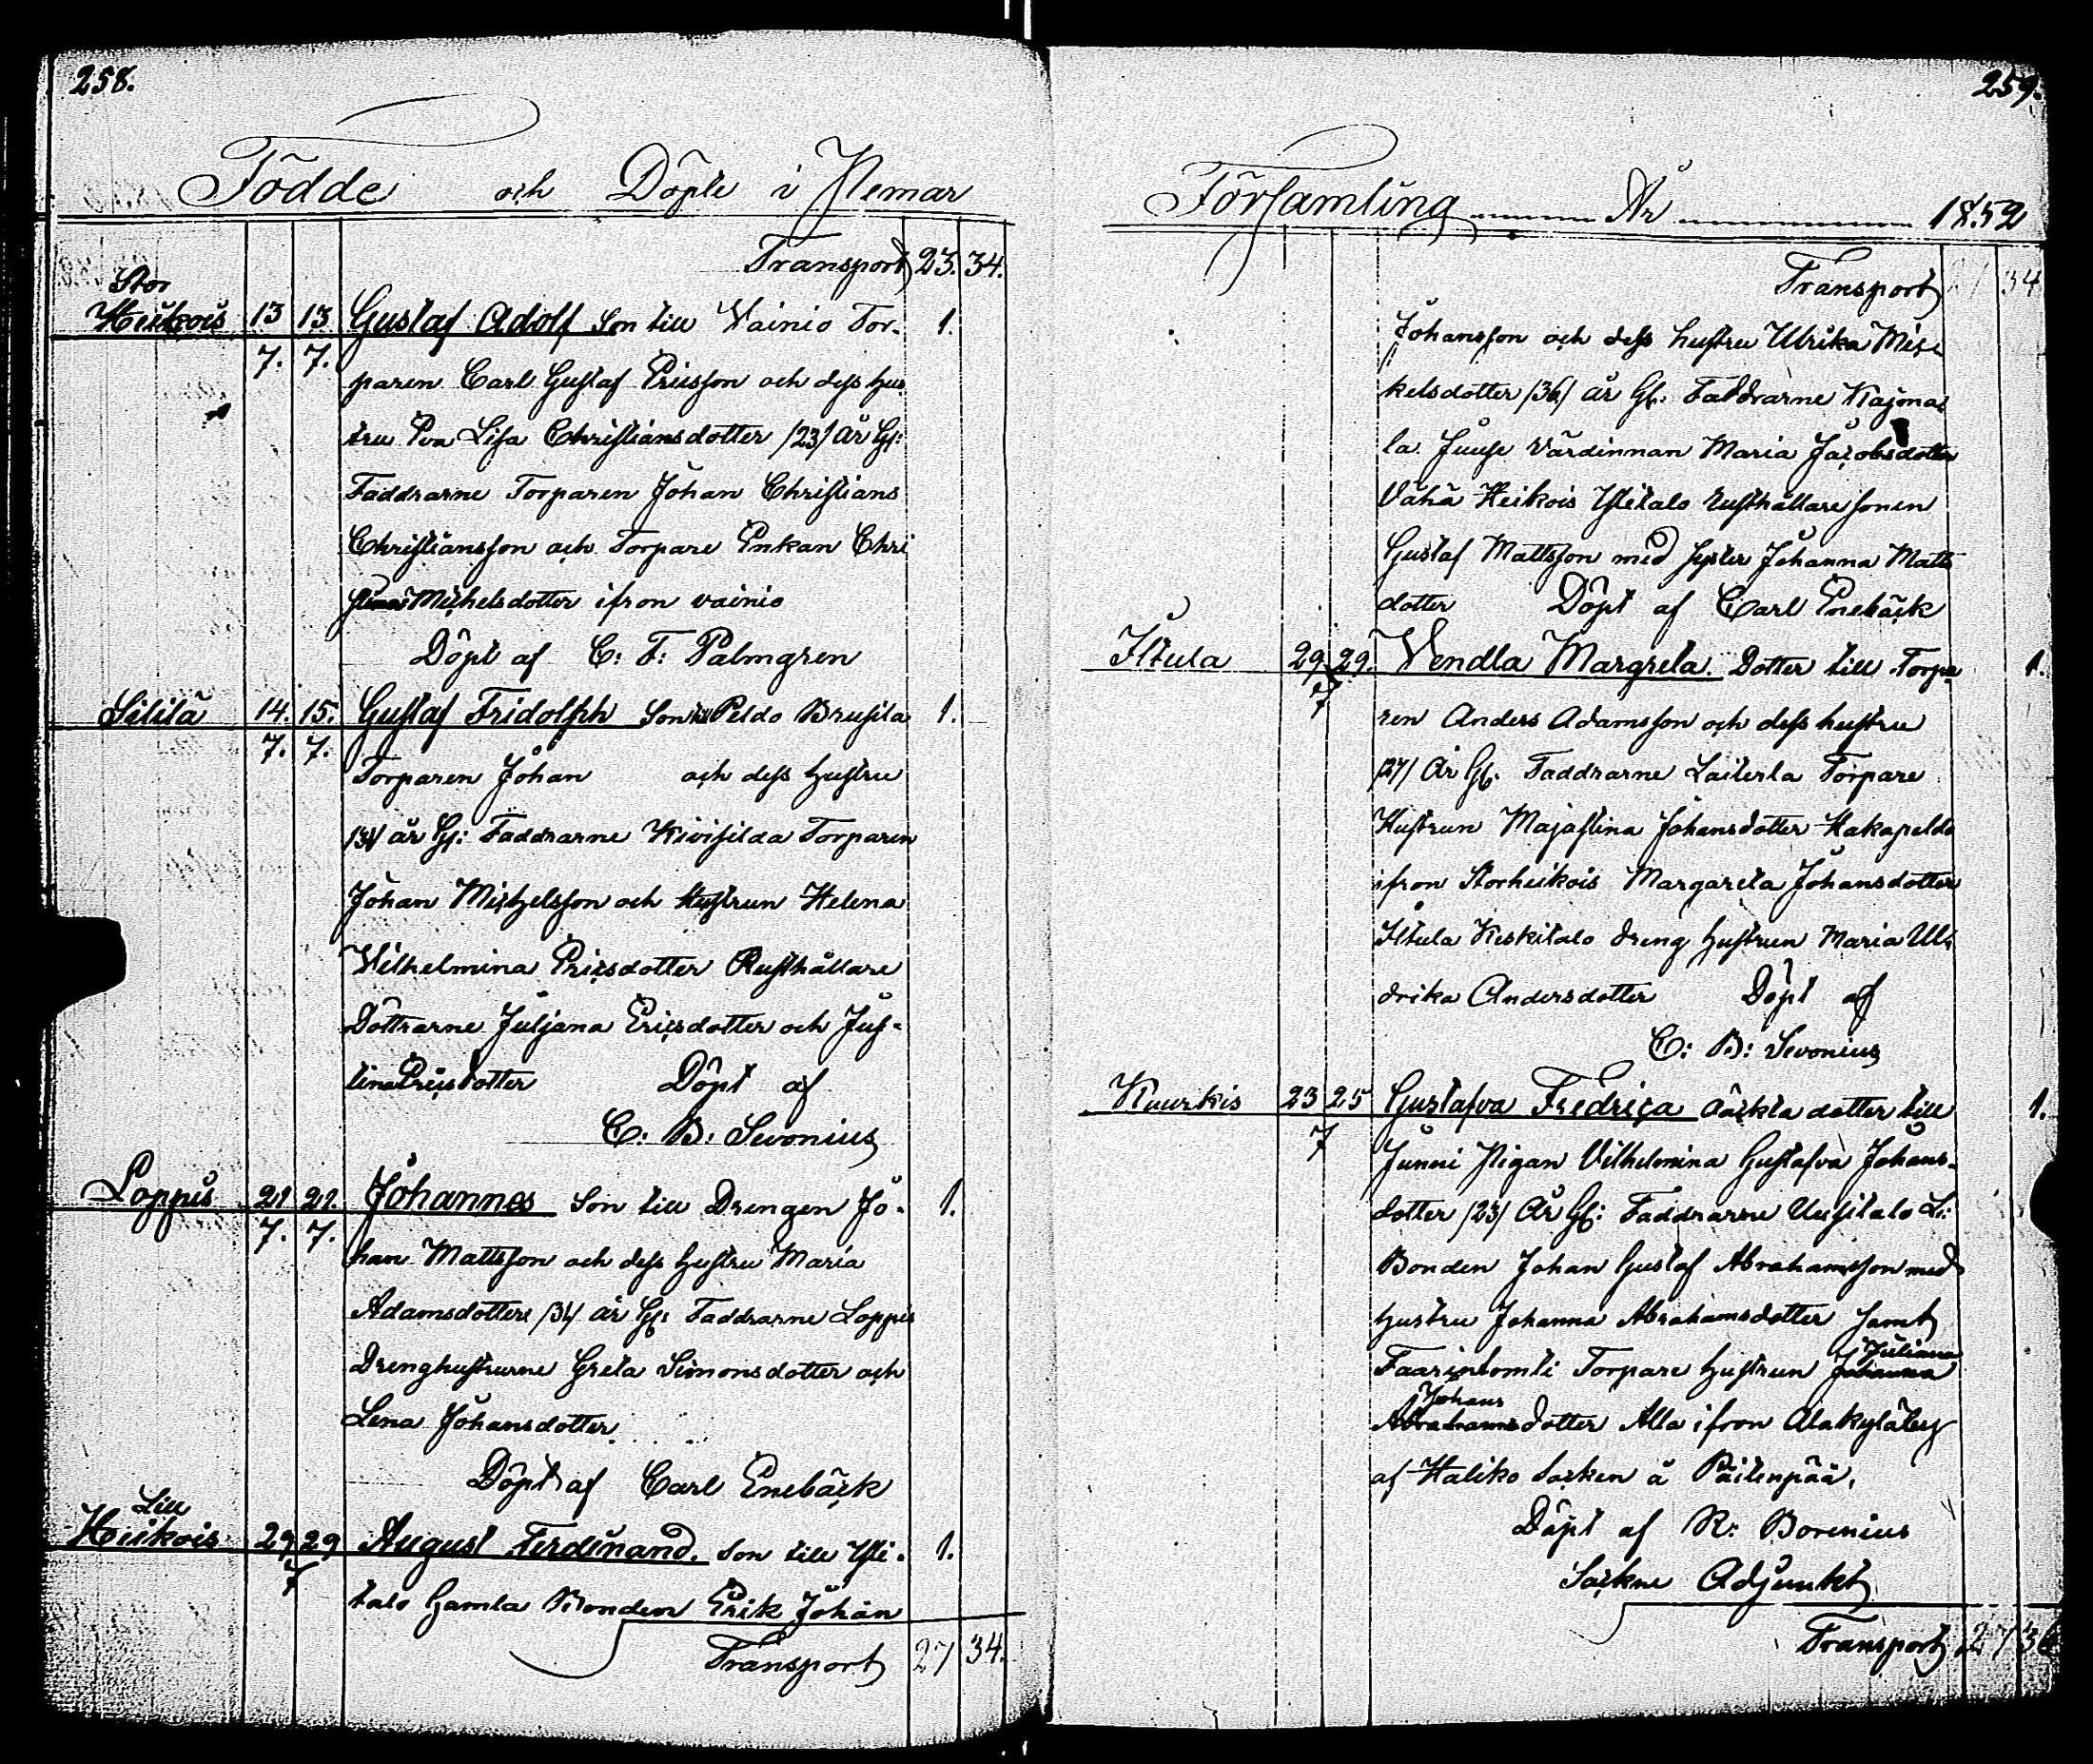 258.
Födde och Döpte i Nemar
Transport 23. 34.
Stor
Heikois 13 13 Gustaf Adolf Son till Wainio Tor- 1.
7. 7.
paren Carl Gustaf Ericsson och dess hus
tru Eva Lisa Christiansdotter /23/ År Gl:
Faddrarne Torparen Johan Christians
Christiansson och Torpare Enkan Chri
Michelsdotter ifron vainio
Döpt af C: F: Palmgren
Sitilä 14. 15. Gustaf Fridolph Son till Peldo Brusila 1.
7. 7.
Torparen Johan och dess hustru
/34/ år Gl: Faddrarne Kivisilda Torparen
Johan Michelsson och Hustrun Helena
Wilhelmina Ericsdotter Rusthållare
Dottrarne Juljana Ericsdotter och Jus-
tina Ericsdotter Döpt af
C: B: Sevonius
Loppis 21 21. Johannes Son till Drengen Jo- 1.
7. 7.
han Mattsson och dess hustru Maria
Adamsdotter /34/ år Gl: Faddrarne Loppis
Drenghustrurne Greta Simonsdotter och
Lena Johansdotter
Döpt af Carl Enebäck
Lill
Heikois 29 29 August Ferdinand. Son till Yli- 1.
7
talo Gamla Bonden Erik Johan
Transport 27 34.
259.
Församling År 1852
Transport 27 34
Johansson och dess hustru Ulrika Mic-
kelsdotter /36/ år Gl: Faddrarne Kajma-
la Juuse Värdinnan Maria Jacobsdotter
Vähä Heikois Ylitalo Rusthållare sonen
Gustaf Mattsson med syster Johanna Matts
dotter Döpt af Carl Enebäck
Iltula 29 29. Vendla Margreta. Dotter till Torpa 1.
7
ren Anders Adamsson och dess hustru
/27/ År Gl: Faddrarne Laiterla Torpare
Hustrun Majastina Johansdotter Hakapeldo
ifron Storheikois Margareta Johansdotter
Iltula Keskitalo dreng hustrun Maria Ul-
drika Andersdotter Döpt af
C: B: Sevonius
Kuurkis 23 25 Gustafva Fredrica oäckta dotter till 1.
7
Junni Pigan Vilhelmina Gustafva Johans-
dotter /23/ År Gl: Faddrarne Uusitalo L:
Bonden Johan Gustaf Abrahamsson med
hustru Johanna Abrahamsdotter samt
Juliana
Faarintomti Torpare hustrun Johanna
Johans
Abrahamsdotter Alla ifron Alakylä by
af Haliko Socken å Päitenpää.
Döpt af R: Borenius
Sockne Adjunkt
Transport 27 36